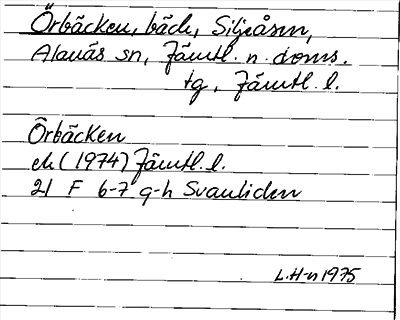 Örbäcken, bäck, Siljeåsen,
Alanäs sn, Jämtl. n. doms.
tg, Jämtl. l.
Örbäcken
ek (1974) Jämtl. l.
21 F 6-7 g-h Svanliden
L.H-n 1975